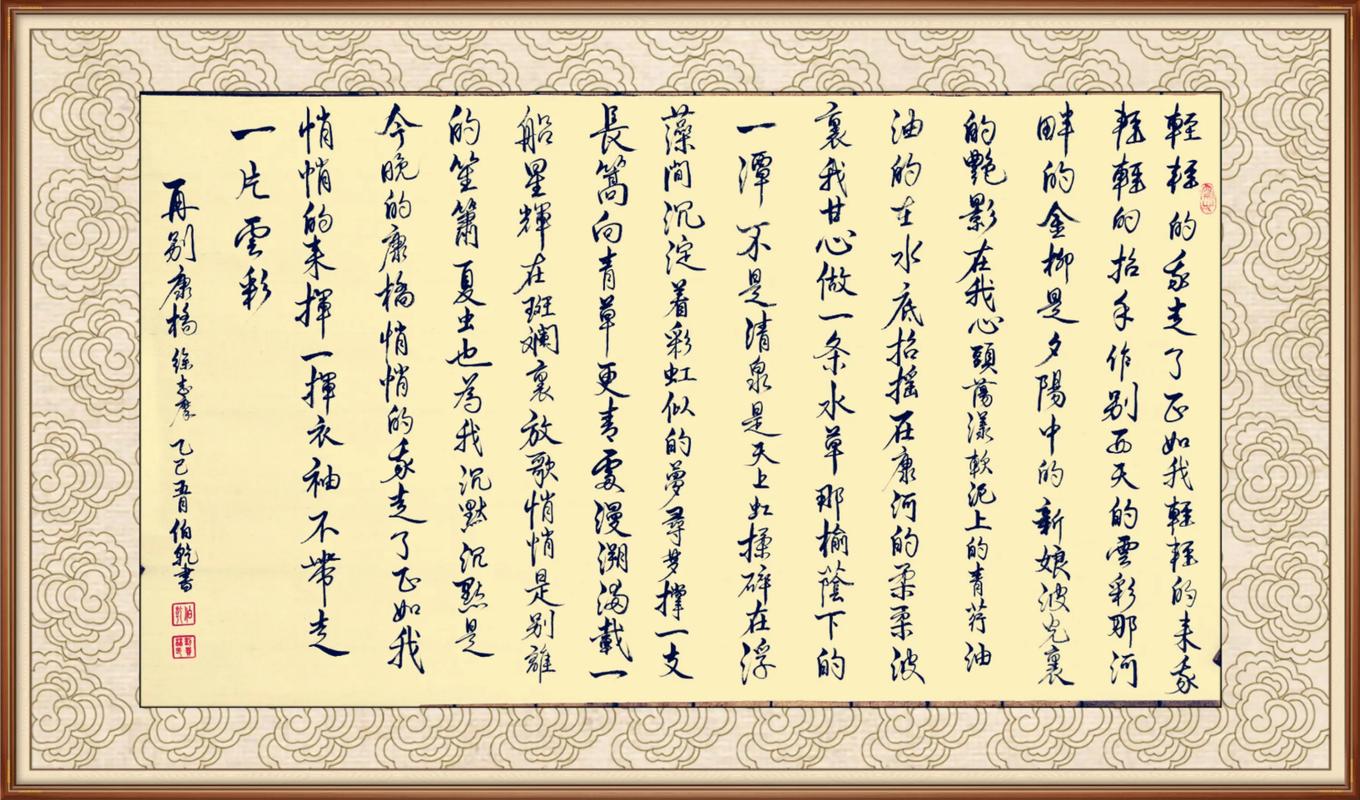 輕輕的我走了正如我輕輕的来我
輕輕的招手作别西天的雲彩那河
畔的金柳是夕陽中的新娘波光裏
的艷影在我心頭蕩漾軟泥上的青荇油
油的在水底招摇在康河的柔柔波
裏我甘心做一条水草那榆蔭下的
一潭不是清泉是天上虹揉碎在浮
藻間沉淀着彩虹似的夢尋梦撑一支
長篙向青草更青處漫溯滿載一
船星輝在斑斕裏放歌悄悄是别離
的笙簫夏虫也為我沉默沉默是
今晚的康橋悄悄的我走了正如我
悄悄的来揮一揮衣袖不帶走
一片雲彩
再别康橋 徐志摩 乙巳五月 伯乾書